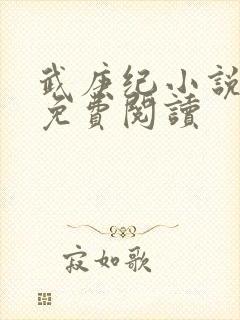 武庚纪小説
免費閱讀
寂如歌